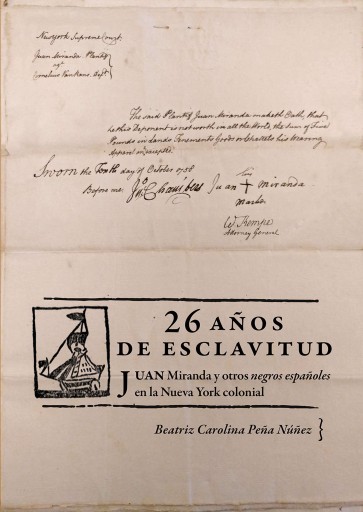 New York Supreme Court.
Juan Miranda Plantif
agt
Cornelius Vankans. Deft
The said Plantif Juan Miranda maketh Oath, that
he this Deponent is not worth in all the World, the Sum of Five
Pounds in Lands Tenements Goods or Chattels his Wearing
Apparel
Sworn the Tenth day of October 1758
Before me. Jno Chambers Juan + Miranda
his
marke
W. Kempe
Attorney General
26 AÑOS
DE ESCLAVITUD
JUAN Miranda y otros negros españoles
en la Nueva York colonial
Beatriz Carolina Peña Núñez }